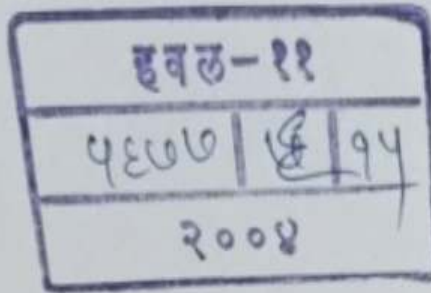 हवल-११
५६७७ | | १५
२००४